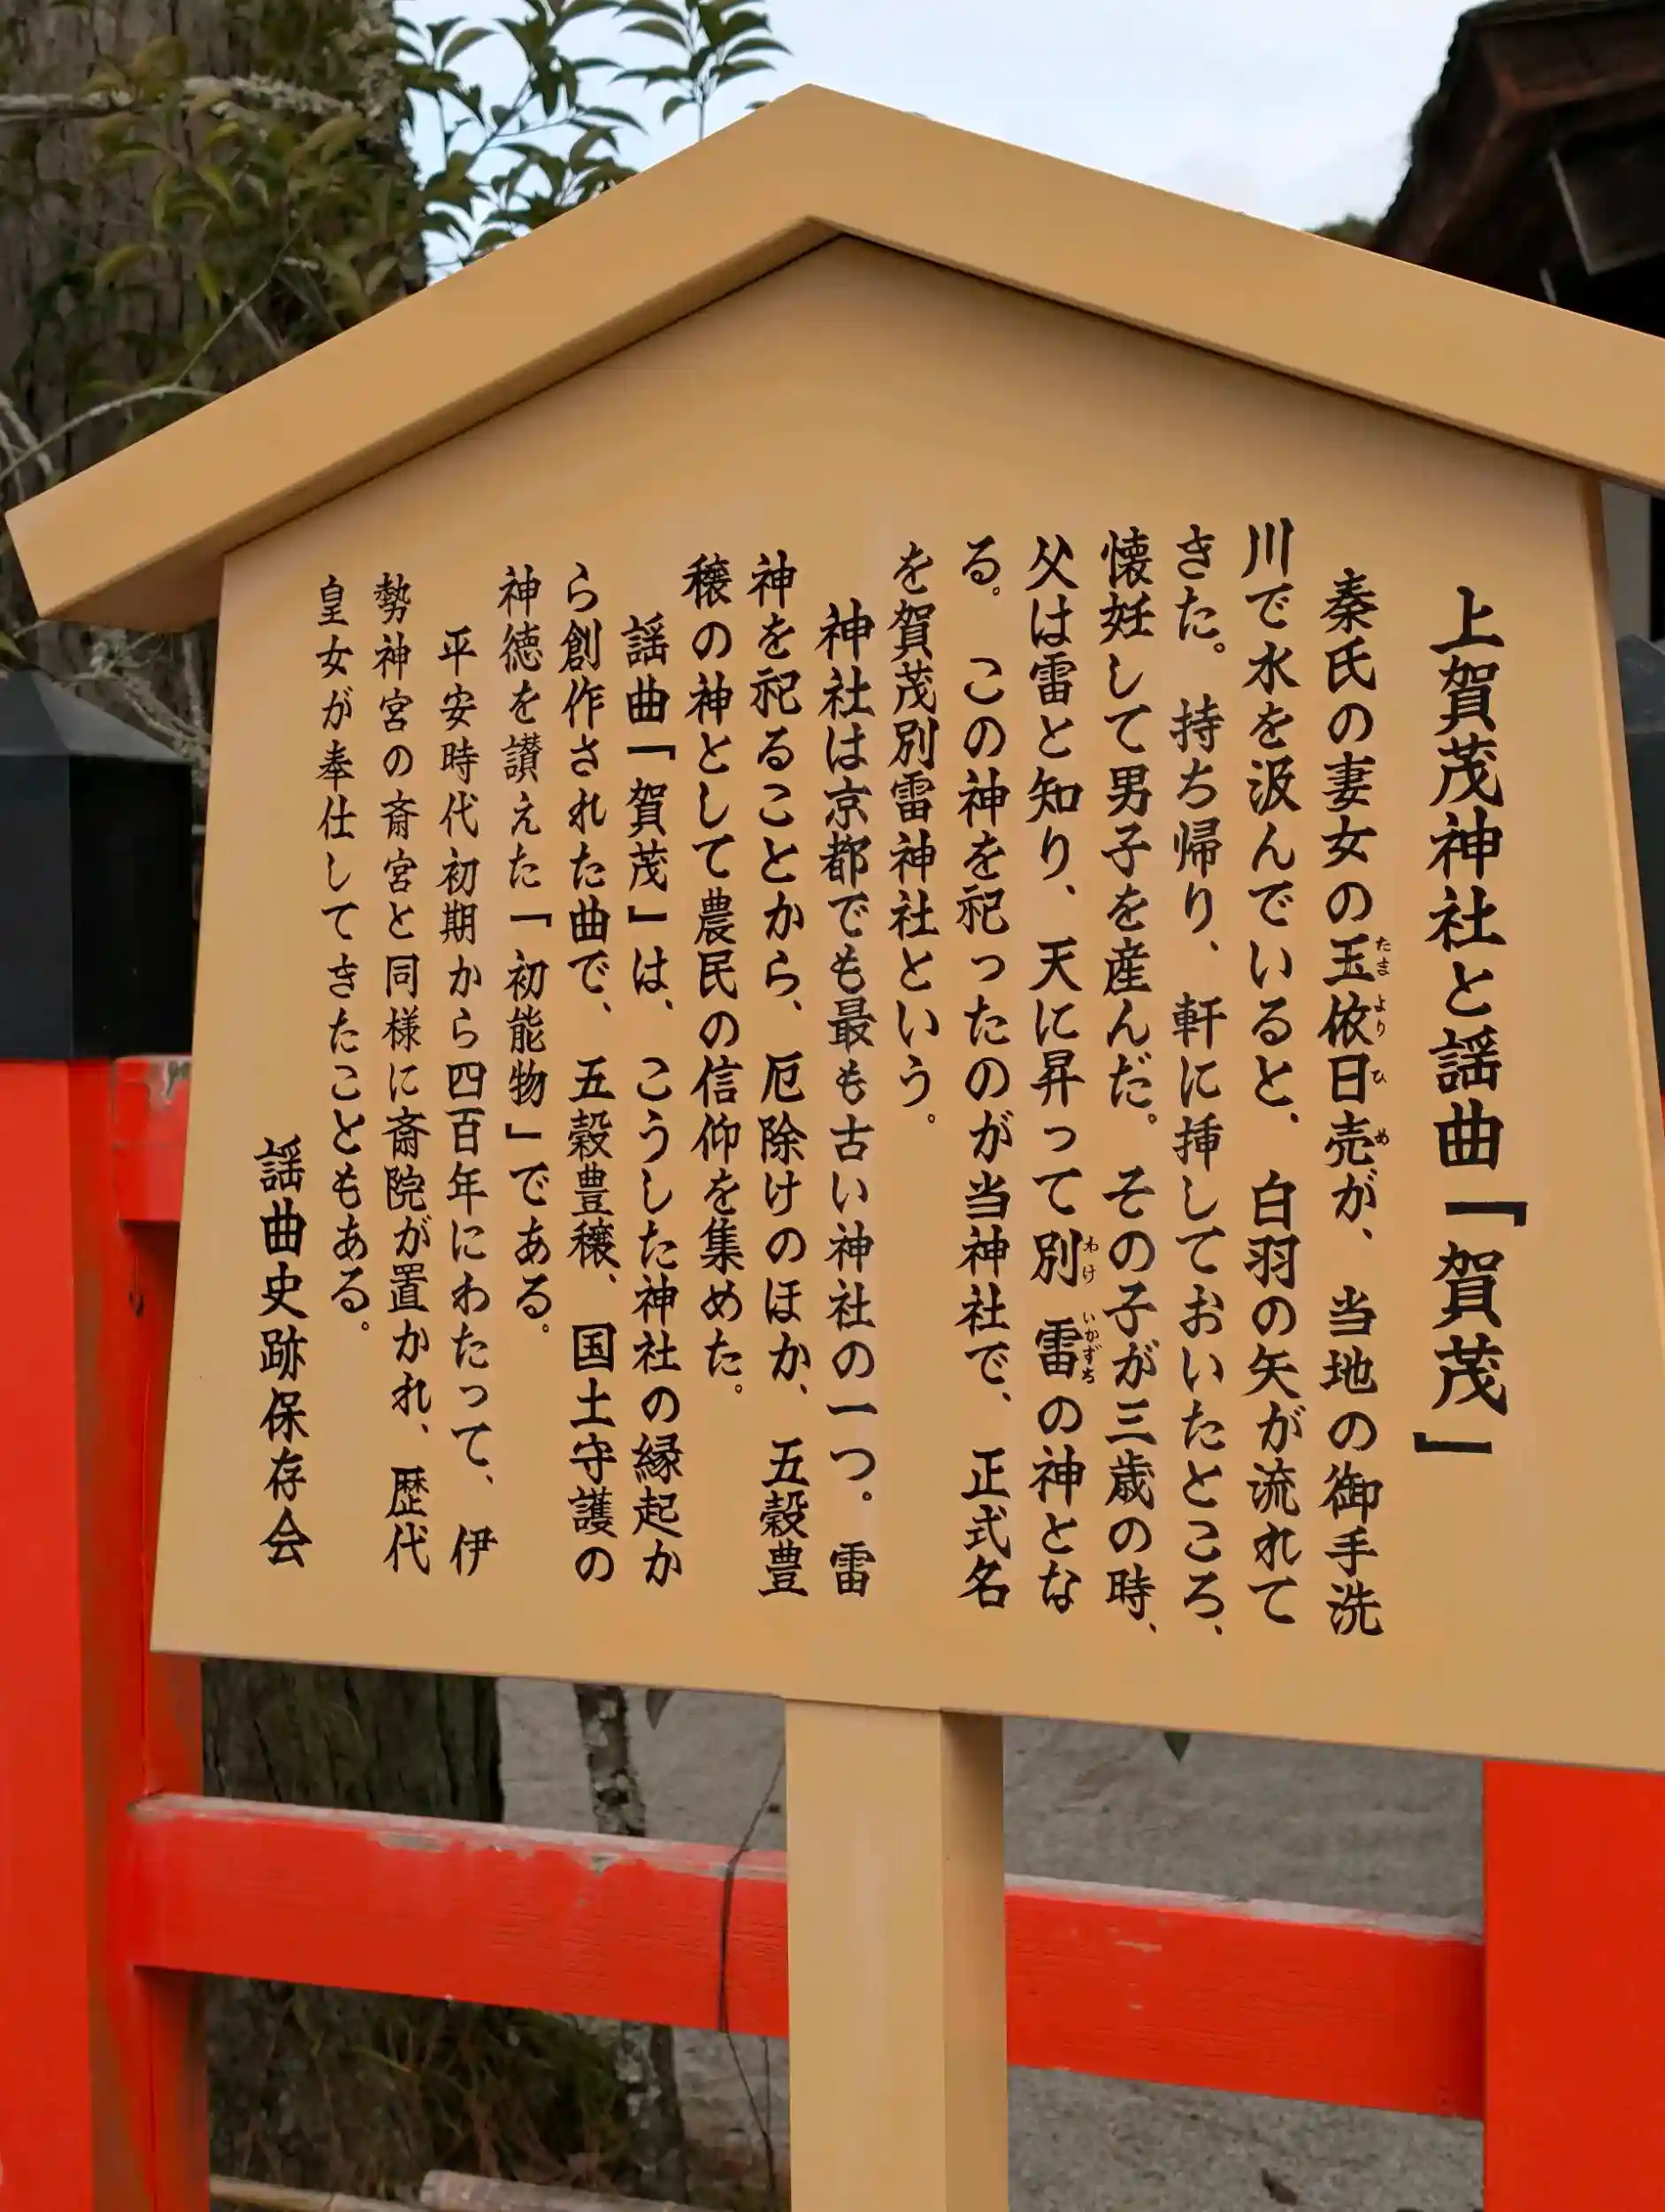 上賀茂神社と謡曲「賀茂」
秦氏の妻女の玉依日売が、当地の御手洗
たまよりひめ
川で水を汲んでいると、白羽の矢が流れて
きた。持ち帰り、軒に挿しておいたところ、
懐妊して男子を産んだ。その子が三歳の時、
父は雷と知り、天に昇って別雷の神とな
わけいかずち
る。この神を祀ったのが当神社で、正式名
を賀茂別雷神社という。
神社は京都でも最も古い神社の一つ。雷
神を祀ることから、厄除けのほか、五穀豊
穣の神として農民の信仰を集めた。
謡曲「賀茂」は、こうした神社の縁起か
ら創作された曲で、五穀豊穣、国土守護の
神徳を讃えた「初能物」である。
平安時代初期から四百年にわたって、伊
勢神宮の斎宮と同様に斎院が置かれ、歴代
皇女が奉仕してきたこともある。
謡曲史跡保存会